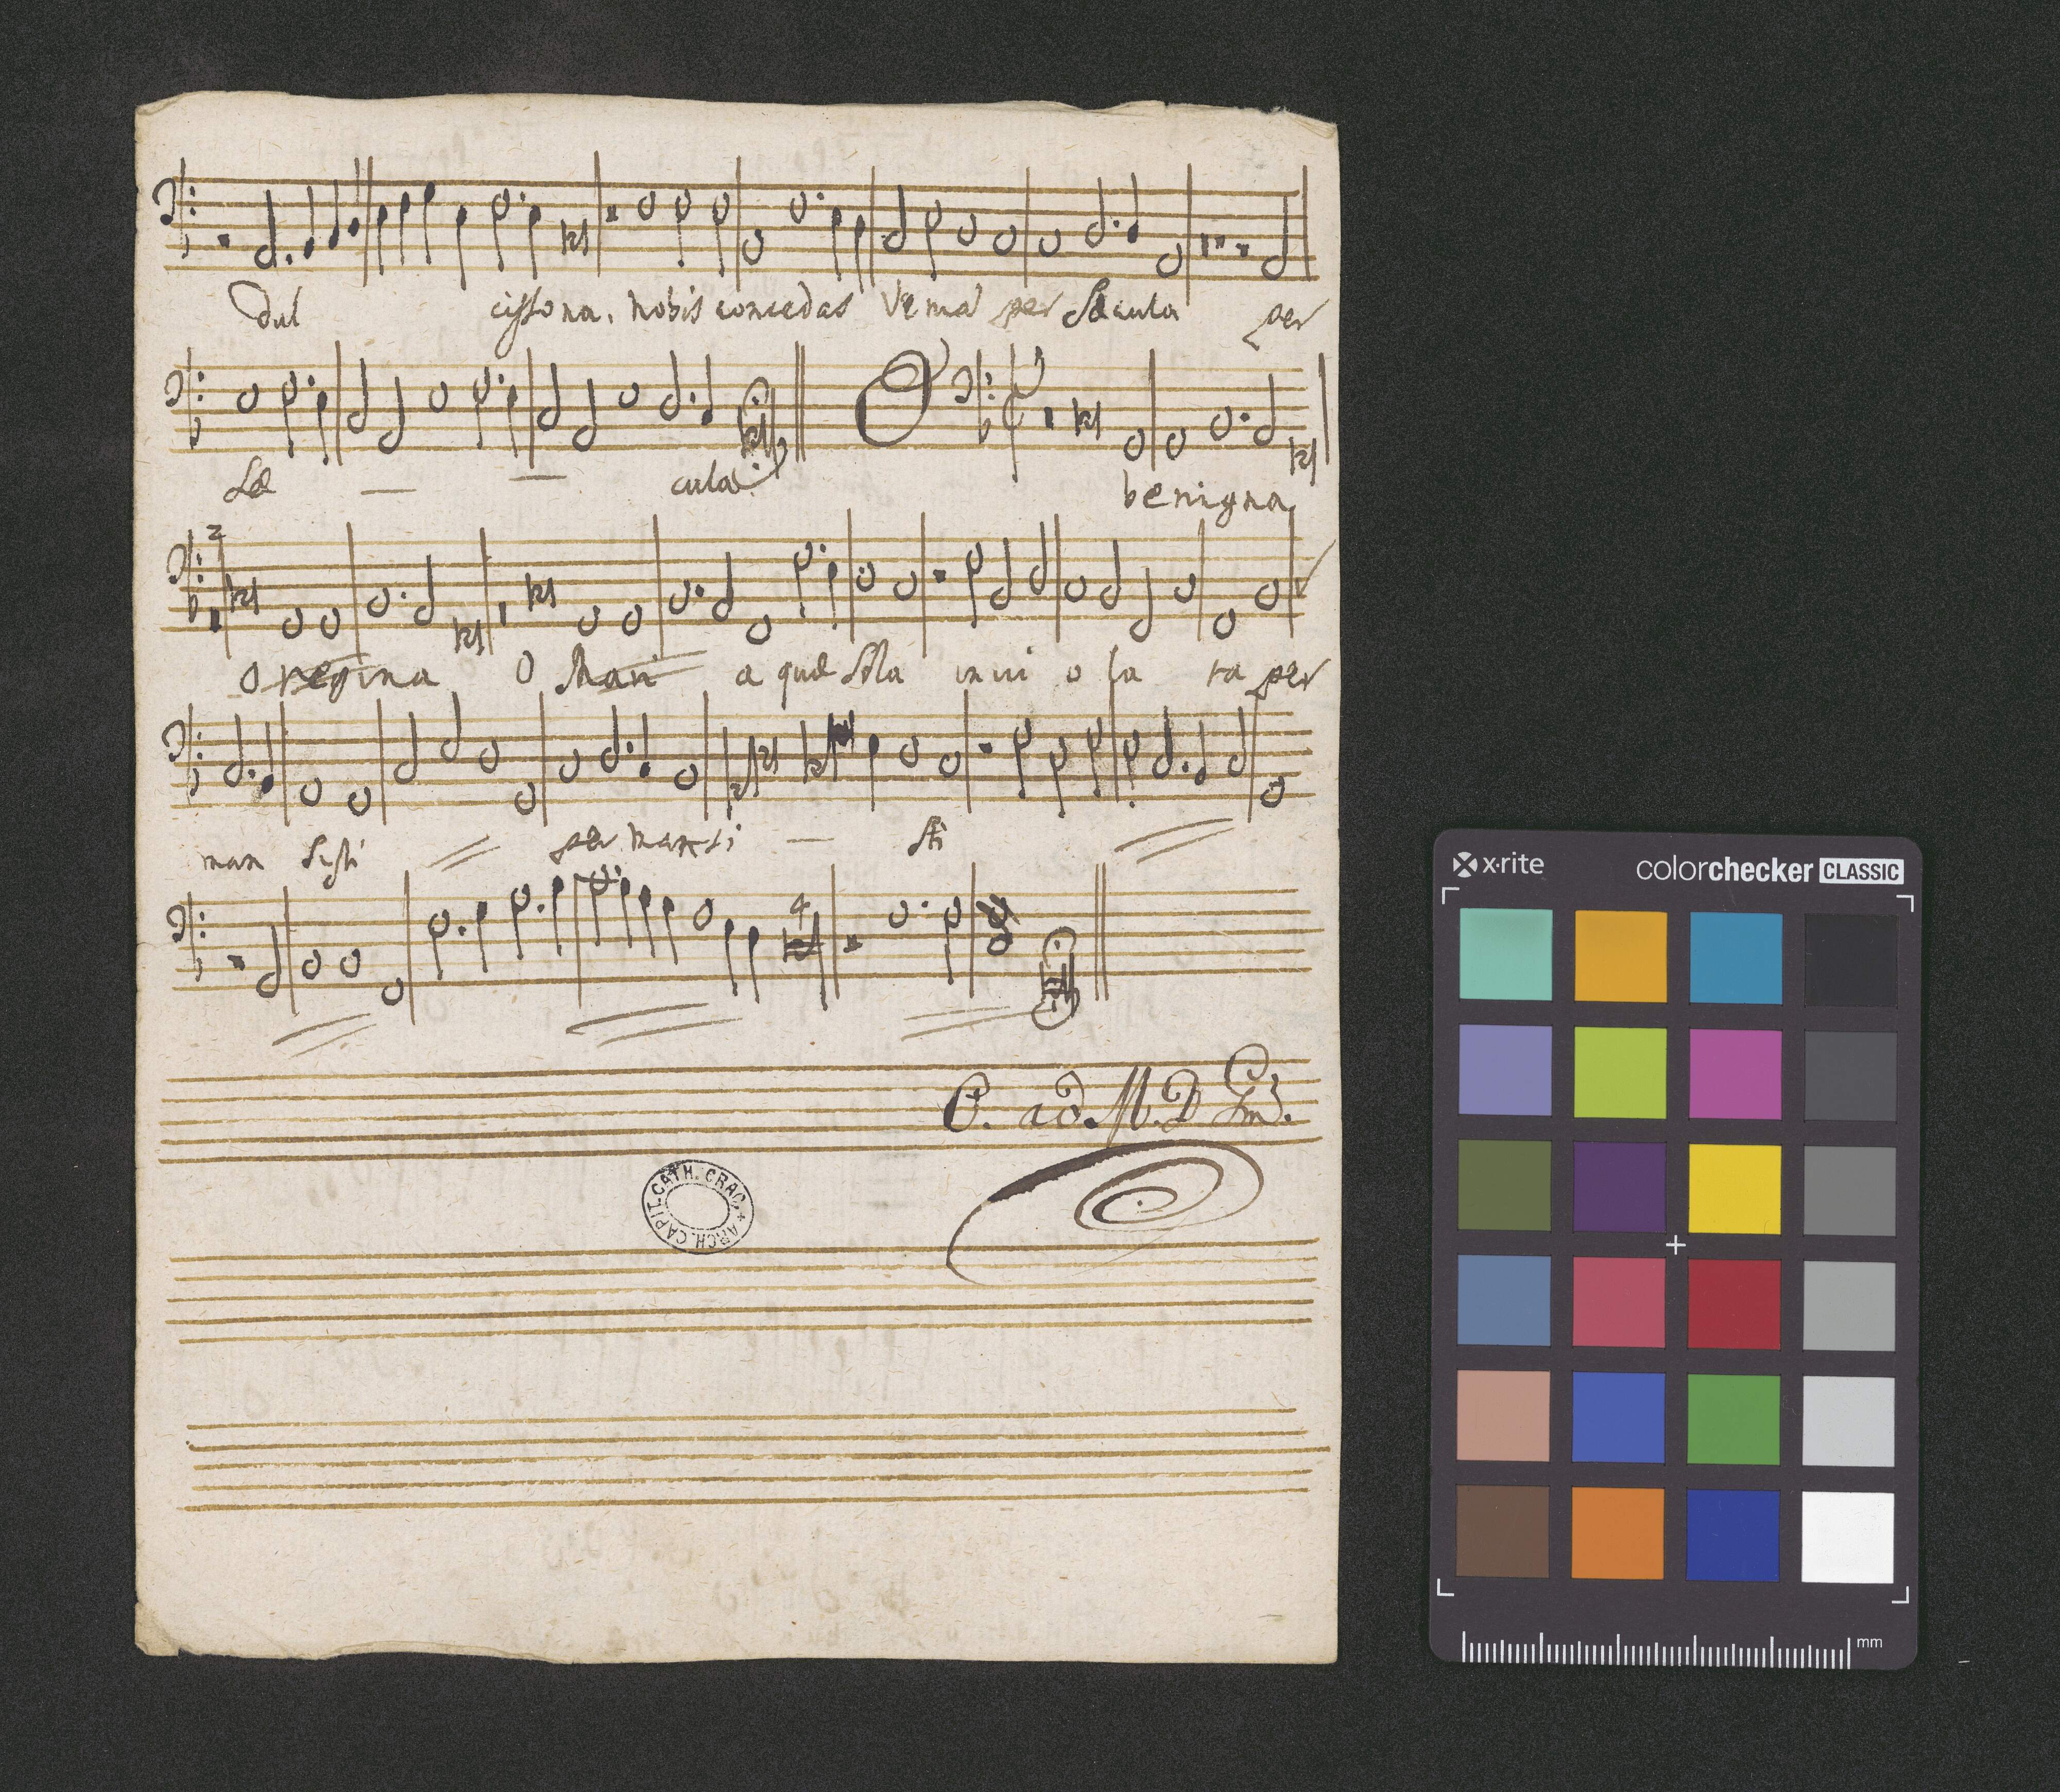 dul cissona. nobis concedas Venia per Sæcula per
Sæ — — cula. O benigna
2
O regina O Mari a quæ Sola invi o la ta per
man sisti per mansi — sti
4
C. ad. M. D. Gm.
ARCH. CAPIT. CATH. CRAC.
x-rite colorchecker CLASSIC
mm